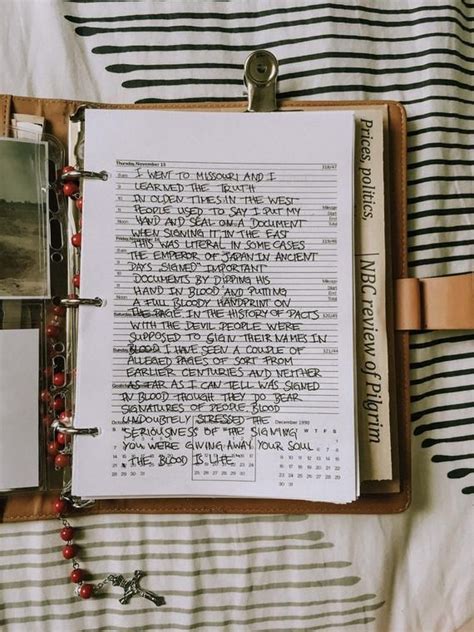 Thursday, November 15
I WENT TO MISSOURI AND I
LEARNED THE TRUTH
IN OLDEN TIMES IN THE WEST
PEOPLE USED TO SAY I PUT MY
Mileage
HAND AND SEAL ON A DOCUMENT
WHEN SIGNING IT IN THE EAST
THIS WAS LITERAL IN SOME CASES
THE EMPEROR OF JAPAN IN ANCIENT
DAYS "SIGNED" IMPORTANT
DOCUMENTS BY DIPPING HIS
Mileage
HAND IN BLOOD AND PUTTING
A FULL BLOODY HANDPRINT ON
THE PAGE IN THE HISTORY OF PACTS
WITH THE DEVIL PEOPLE WERE
SUPPOSED TO SIGN THEIR NAMES IN
BLOOD I HAVE SEEN A COUPLE OF
ALLEGED PAGES OF SORT FROM
EARLIER CENTURIES AND NEITHER
AS FAR AS I CAN TELL WAS SIGNED
IN BLOOD THOUGH THEY DO BEAR
SIGNATURES OF PEOPLE BLOOD
October
December 1990
UNDOUBTELY STRESSED THE
SERIOUSNESS OF THE SIGNING
YOU WERE GIVING AWAY YOUR SOUL
THE BLOOD IS LIFE
Prices, politics,
NBC review of Pilgrim